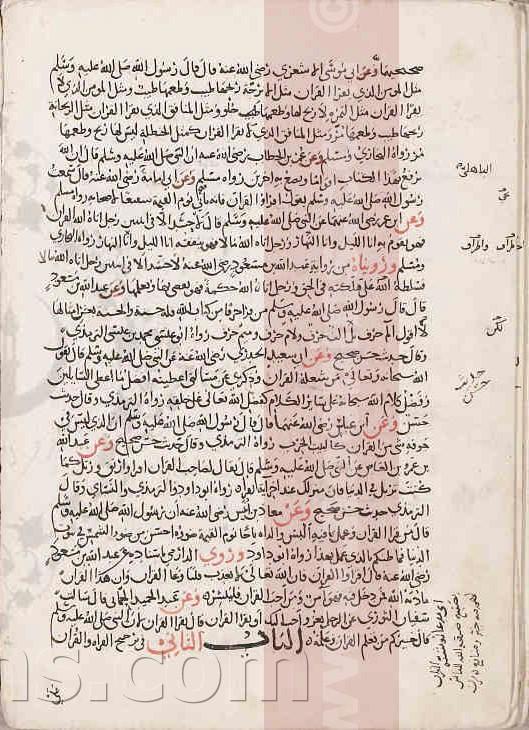 صحيحيهما وعن ابي موسى الاشعري رضي الله عنه قال قال رسول الله صلى الله عليه وسلم
مثل المومن الذي يقرا القران مثل الاترجة ريحها طيب وطعمها طيب ومثل المومن الذي لا
يقرا القران مثل التمرة لا ريح لها وطعمها طيب حلو ومثل المنافق الذي يقرا القران مثل الريحانة
ريحها طيب وطعمها مر ومثل المنافق الذي لا يقرا القران كمثل الحنظلة ليس لها ريح وطعمها
مر رواه البخاري ومسلم وعن عمر بن الخطاب رضي الله عنه ان النبي صلى الله عليه وسلم قال ان الله
يرفع بهذا الكتاب اقواما ويضع به اخرين رواه مسلم وعن ابي امامة رضي الله عنه قال سمعت
رسول الله صلى الله عليه وسلم يقول اقراوا القران فانه ياتي يوم القيمة شفيعا لاصحابه رواه مسلم
وعن ابن عمر رضي الله عنهما عن النبي صلى الله عليه وسلم قال لا حسد الا في اثنين رجل اتاه الله القران
فهو يقوم به انا الليل وانا النهار ورجل اتاه الله مالا فهو ينفقه انا الليل وانا النهار رواه البخاري
ومسلم وروياه من رواية عبد الله بن مسعود رضي الله عنه لا حسد الا في اثنين رجل اتاه الله مالا
فسلطه الله على هلكته في الحق ورجل اتاه الله حكمة فهو يقضي بها ويعلمها وعن عبد الله بن مسعود
قال قال رسول الله صلى الله عليه وسلم من قرا حرفا من كتاب الله فله حسنة والحسنة بعشر امثالها
لا اقول الم حرف بل الف حرف ولام حرف وميم حرف رواه ابو عيسى محمد بن عيسى الترمذي
وقال حديث حسن صحيح وعن ابي سعيد الخدري رضي الله عنه عن النبي صلى الله عليه وسلم قال يقول
الله سبحانه وتعالى من شغله القران وذكري عن مسالتي اعطيته افضل ما اعطي السائلين
وفضل كلام الله سبحانه على سائر الكلام كفضل الله تعالى على خلقه رواه الترمذي وقال حديث
حسن وعن ابن عباس رضي الله عنهما قال قال رسول الله صلى الله عليه وسلم ان الذي ليس في
جوفه شي من القران كالبيت الخرب رواه الترمذي وقال حديث حسن صحيح وعن عبد الله
بن عمرو بن العاص عن النبي صلى الله عليه وسلم قال يقال لصاحب القران اقرا وارتق ورتل كما
كنت ترتل في الدنيا فان منزلتك عند اخر اية تقراها رواه ابو داود والترمذي والنسائي وقال
الترمذي حديث حسن صحيح وعن معاذ بن انس رضي الله عنه ان رسول الله صلى الله عليه وسلم
قال من قرا القران وعمل بما فيه البس والداه تاجا يوم القيمة ضوءه احسن من ضوء الشمس في بيوت
الدنيا فما ظنكم بالذي عمل بهذا رواه ابو داود وروى الدارمي باسناده عن عبد الله بن مسعود
رضي الله عنه قال اقراوا القران فان الله تعالى لا يعذب قلبا وعا القران وان هذا القران
مادبة الله فمن دخل فيه فهو امن ومن احب القران فليبشر وعن عبد الحميد الحماني قال سالت
سفيان الثوري عن الرجل يغزو احب اليك او يقرا القران فقال يقرا القران لان النبي صلى الله عليه وسلم
قال خيركم من تعلم القران وعلمه الباب الثاني في ترجيح القراة والقران
الباهلي
لكن
حديث
حسن
ns.com